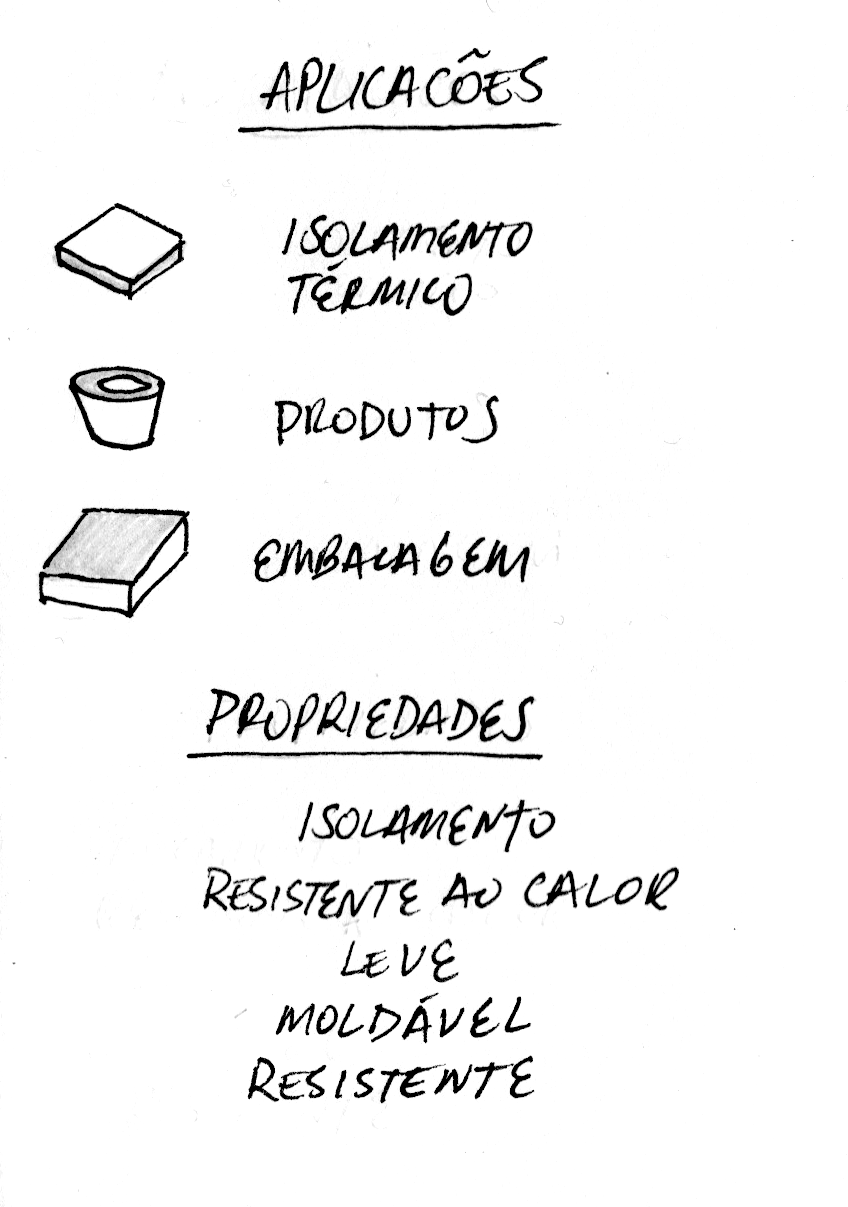 APLICACÕES
ISOLAMENTO
TÉRMICO
PRODUTOS
EMBALAGEM
PROPRIEDADES
ISOLAMENTO
RESISTENTE AO CALOR
LEVE
MOLDÁVEL
RESISTENTE